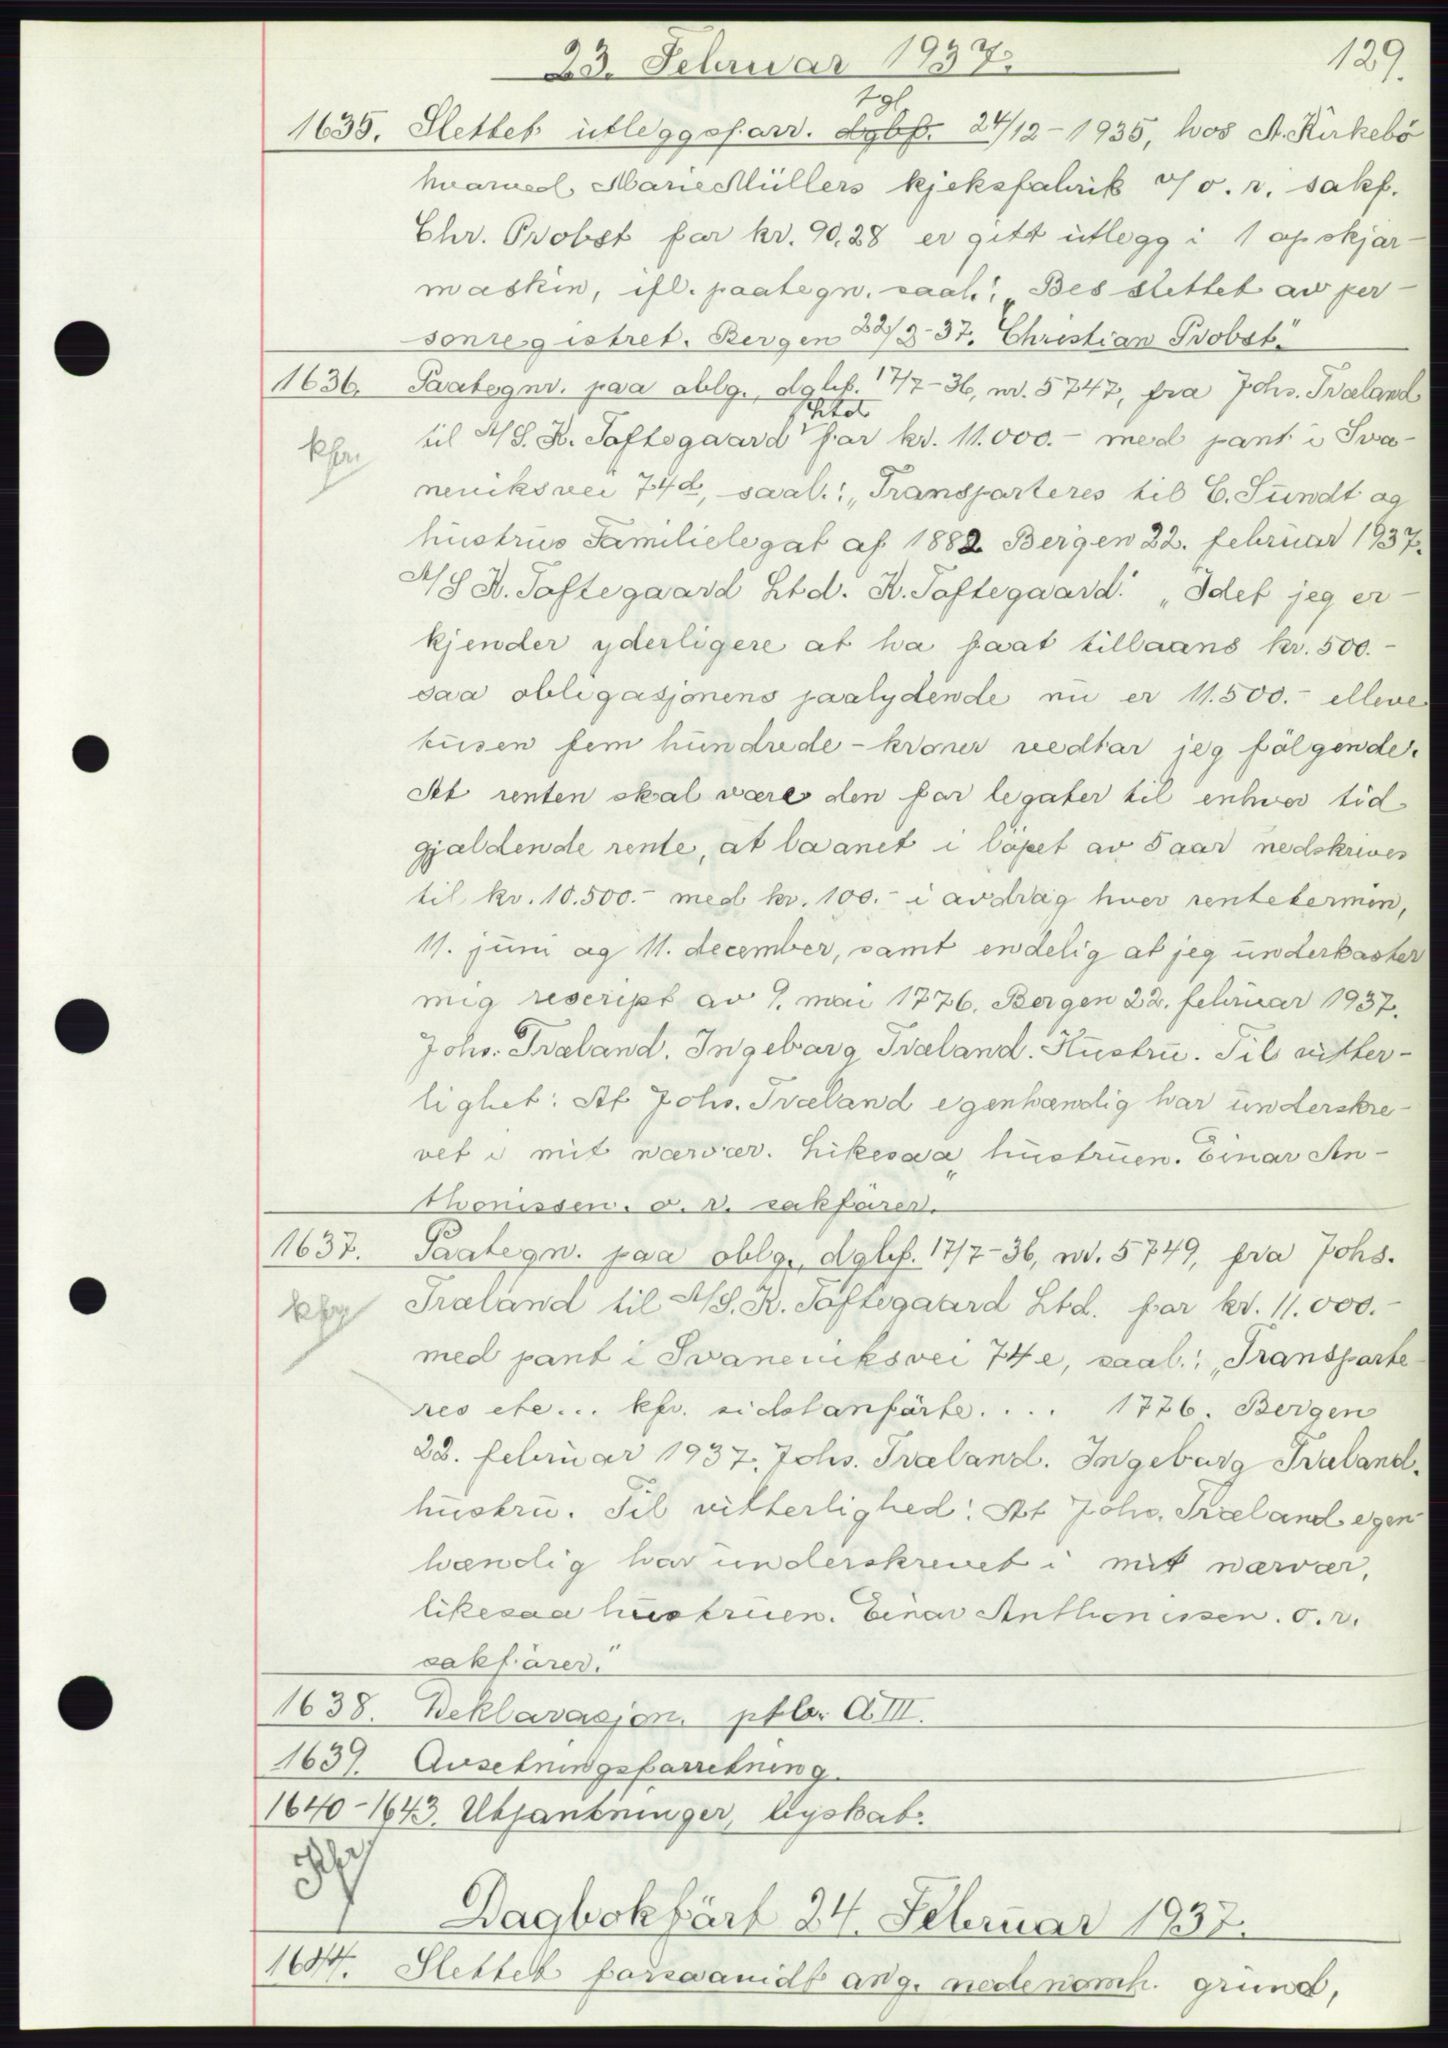 23. Februar 1937. 129.
tgl.
1635. Slettet utleggsforr. dgbf. 24/12-1935, hos A. Kirkebö
hvorved Marie Müllers kjeksfabrik v/ o.r. sakf.
Chr. Probst for kr. 90,28 er gitt utlegg i 1 opskjær-
maskin, ifl. paategn. saal.: „Bes slettet av per-
sonregistret. Bergen 22/2-37. Christian Probst."
1636. Paategn. paa oblg., dgbf. 17/7-36, nr. 5747, fra Johs. Træland
Ltd
kfrn til A/S. K. Toftegaard for kr. 11.000.- med pant i Sva-
neviksvei 74d, saal.: „Transporteres til C. Sundt og
hustrus Familielegat af 1882 Bergen 22. februar 1937.
A/S K. Toftegaard Ltd. K. Toftegaard." „Idet jeg er-
kjender yderligere at ha faat tillaans kr. 500.-
saa obligasjonens paalydende nu er 11.500.- elleve
tusen fem hundrede - kroner vedtar jeg fölgende:
At renten skal være den for legater til enhver tid
gjældende rente, at laanet i löpet av 5 aar nedskrives
til kr. 10.500.- med kr. 100.- i avdrag hver rentetermin,
11. juni og 11. december, samt endelig at jeg underkaster
mig rescript av 9. mai 1776. Bergen 22. februar 1937.
Johs. Træland. Ingeborg Træland. Hustru. Til vitter-
lighet: At Johs. Træland egenhændig har underskre-
vet i mit nærvær. Likesaa hustruen. Einar An-
thonissen. o. r. sakförer."
1637. Paategn. paa oblg., dgbf. 17/7-36, nr. 5749, fra Johs.
kfrn Træland til A/S. K. Toftegaard Ltd. for kr. 11.000.-
med pant i Svaneviksvei 74e, saal.: „Transporte-
res etc... kfr. sidstanförte.... 1776. Bergen
22. februar 1937. Johs. Træland. Ingeborg Træland.
hustru. Til vitterlighed: At Johs. Træland egen-
hændig har underskrevet i mit nærvær,
likesaa hustruen. Einar Anthonissen. o.r.
sakförer."
1638. Deklarasjon. ptbr. A III.
1639. Avsetningsforretning.
1640-1643. Utpantninger, byskat.
Dagbokfört 24. Februar 1937.
1644. Slettet forsaavidt ang. nedenomh. grund,